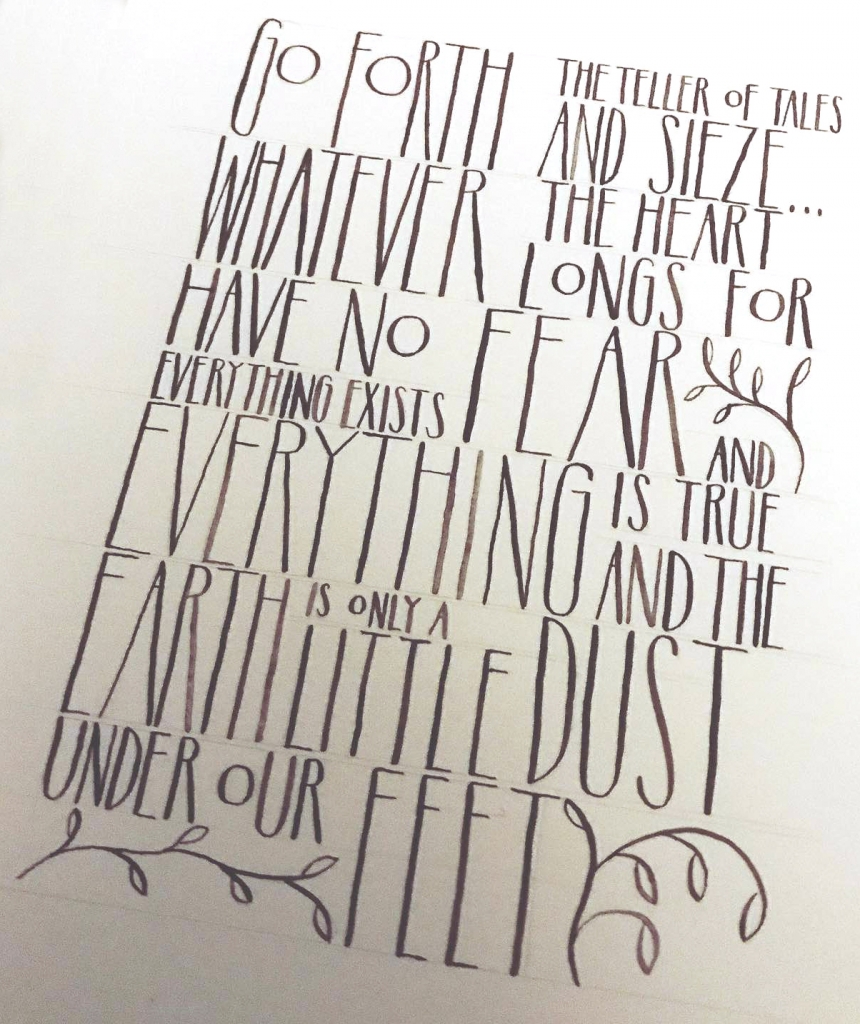 GO FORTH THE TELLER OF TALES
AND SIEZE...
WHATEVER THE HEART
LONGS FOR
HAVE NO FEAR
EVERYTHING EXISTS
AND
EVERYTHING IS TRUE
AND THE
EARTH IS ONLY A
LITTLE DUST
UNDER OUR FEET